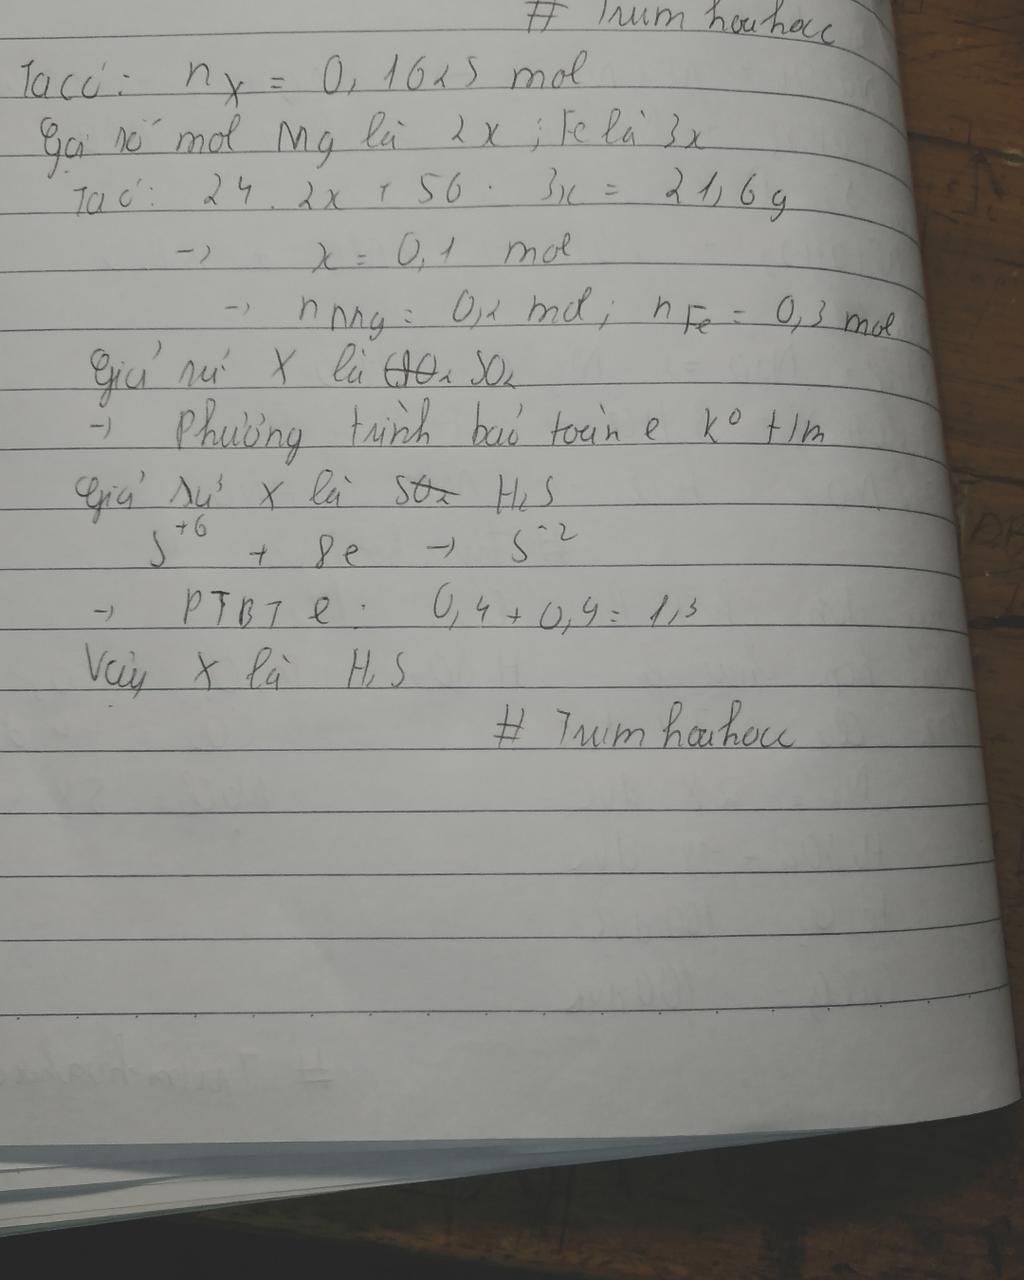 # Trum hoahocc
Ta có: nX = 0,1625 mol
Gọi số mol Mg là 2x ; Fe là 3x
Ta có: 24 . 2x + 56 . 3x = 21,6 g
→ x = 0,1 mol
→ nMg = 0,2 mol ; nFe = 0,3 mol
Giả sử X là SO2
→ Phương trình bảo toàn e k° t/m
Giả sử X là H2S
S+6 + 8e → S-2
→ PTBT e : 0,4 + 0,9 = 1,3
Vậy X là H2S
# Trum hoahocc